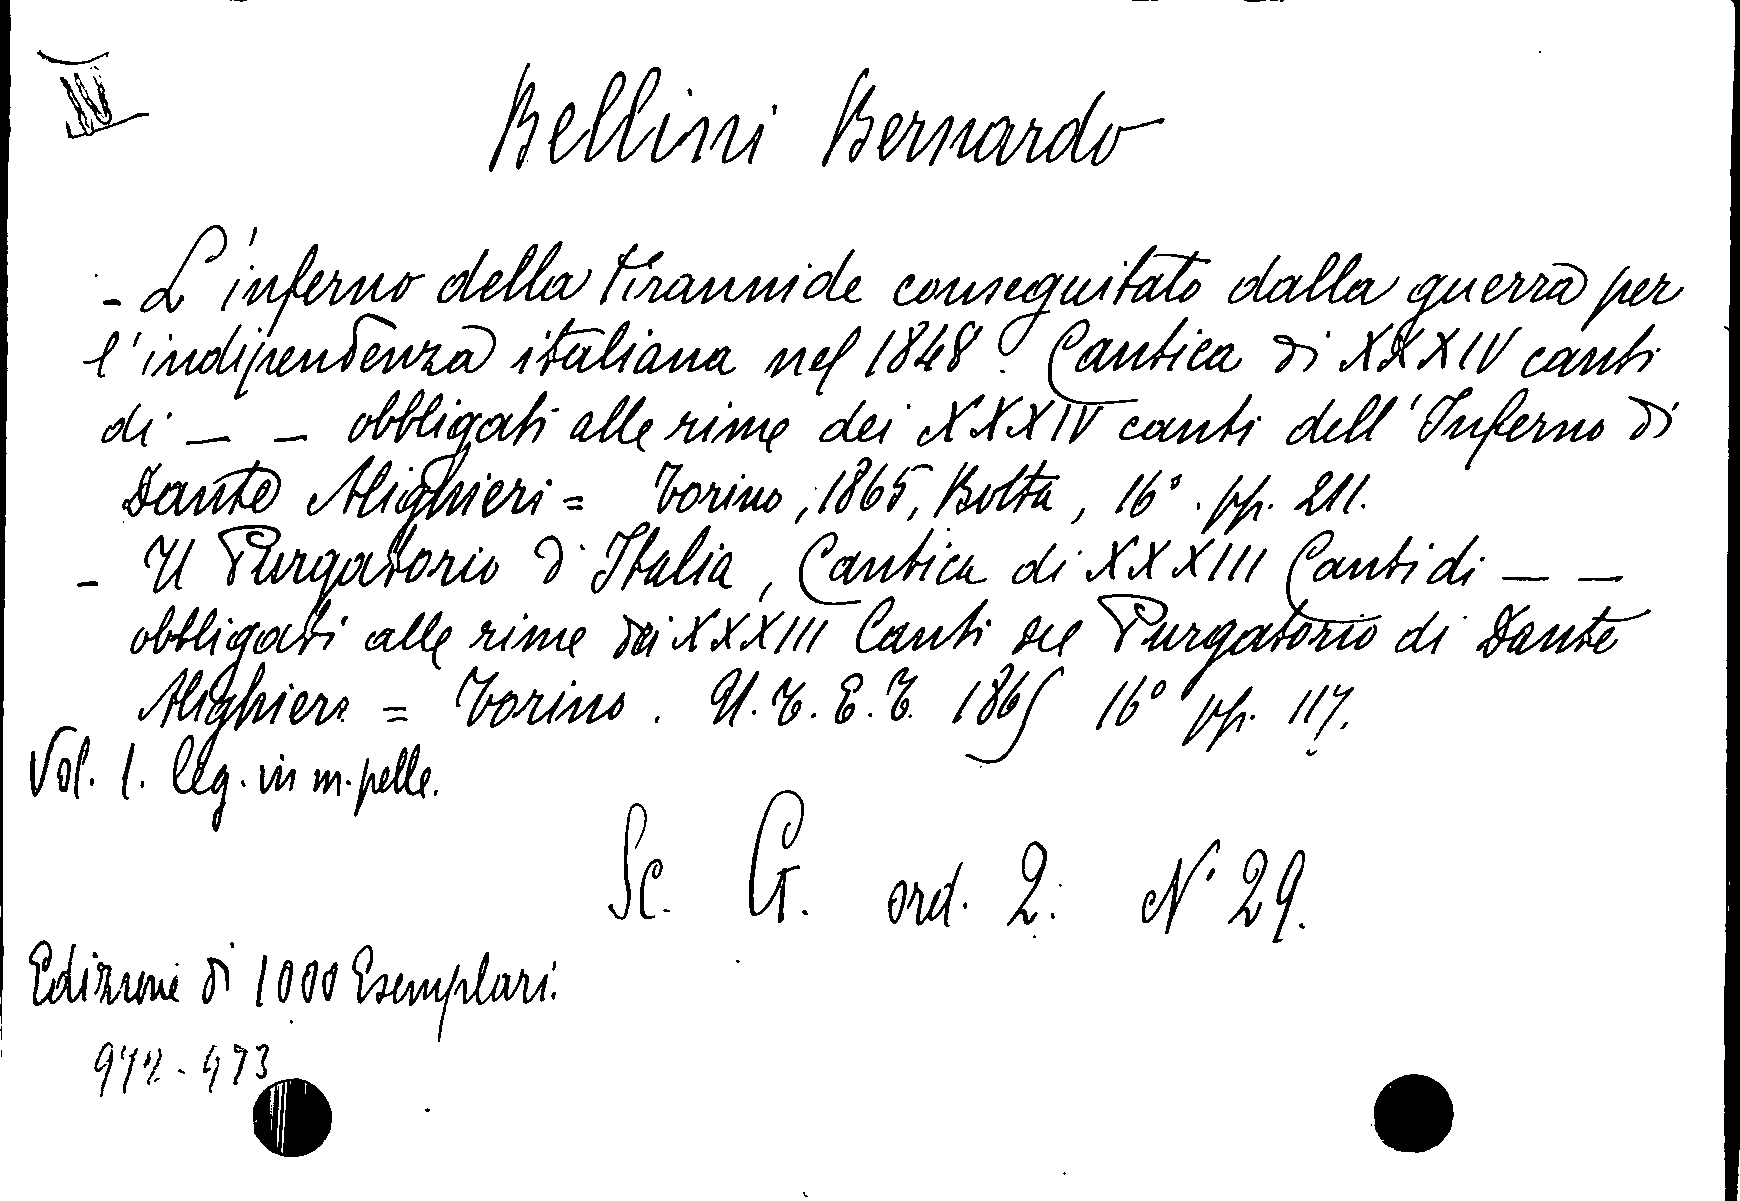 IV
Bellini Bernardo
- L'inferno della tirannide conseguitato dalla guerra per
l'indipendenza italiana nel 1848. Cantica di XXXIV canti
di _ _ obbligati alle rime dei XXXIV canti dell'Inferno di
Dante Alighieri = Torino, 1865, Botta, 16° . pp. 211.
- Il Purgatorio d'Italia, Cantica di XXXIII Canti di _ _
obbligati alle rime dei XXXIII Canti del Purgatorio di Dante
Alighieri = Torino. U.T.E.T. 1865 16° pp. 117.
Vol. 1. leg. in m. pelle.
Sc. G. ord. 2. N° 29.
Edizione di 1000 Esemplari.